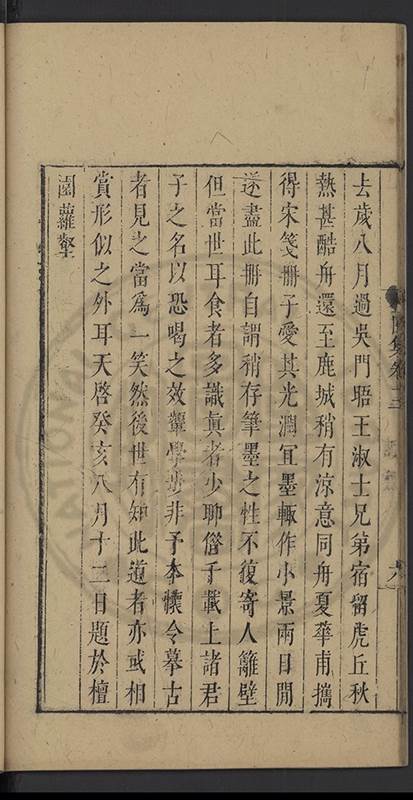 去歲八月過吳門晤王淑士兄弟宿留虎丘秋
熱甚酷舟還至鹿城稍有涼意同舟夏華甫攜
得宋箋冊子愛其光潤宜墨輒作小景兩日閒
遂盡此冊自謂稍存筆墨之性不復寄人籬壁
但當世耳食者多識真者少聊僭千載上諸君
子之名以恐喝之效顰學步非予本懷令摹古
者見之當爲一笑然後世有知此道者亦或相
賞形似之外耳天啓癸亥八月十二日題於檀
園蘿壑
集卷十二
六